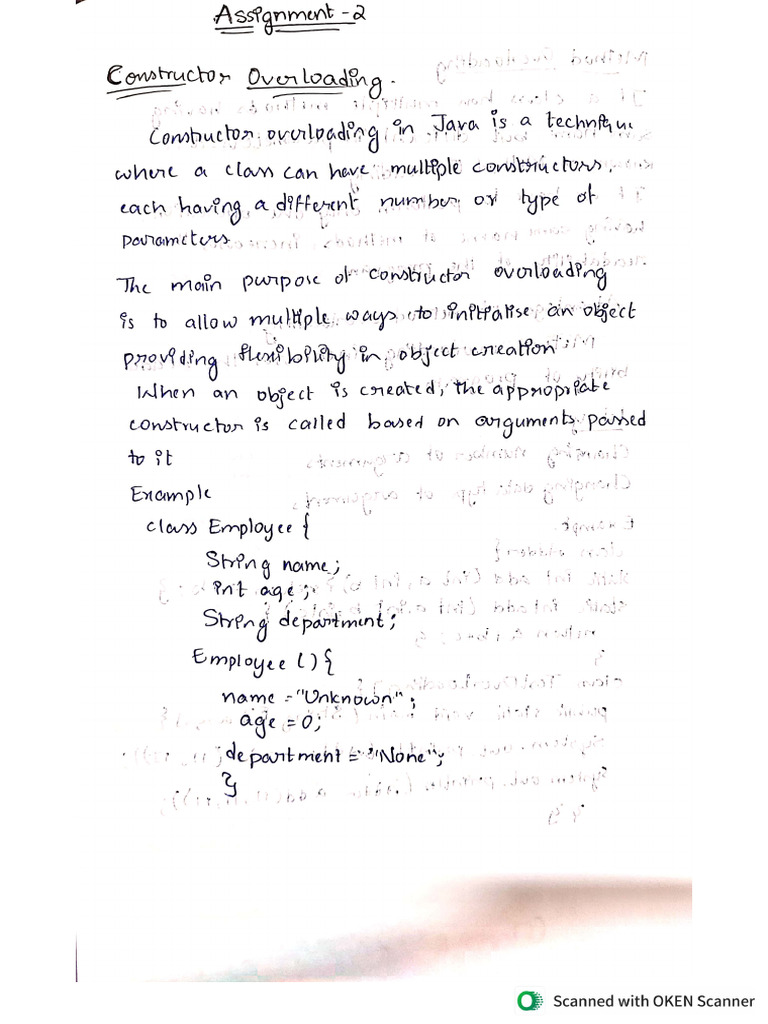 Assignment - 2
Constructor Overloading.
Constructor overloading in Java is a technique
where a class can have multiple constructors,
each having a different number or type of
parameters
The main purpose of constructor overloading
is to allow multiple ways to initialise an object
providing flexibility in object creation
When an object is created, the appropriate
constructor is called based on arguments passed
to it
Example
class Employee {
String name;
int age;
String department;
Employee () {
name = "Unknown";
age = 0;
department = "None";
}
Scanned with OKEN Scanner